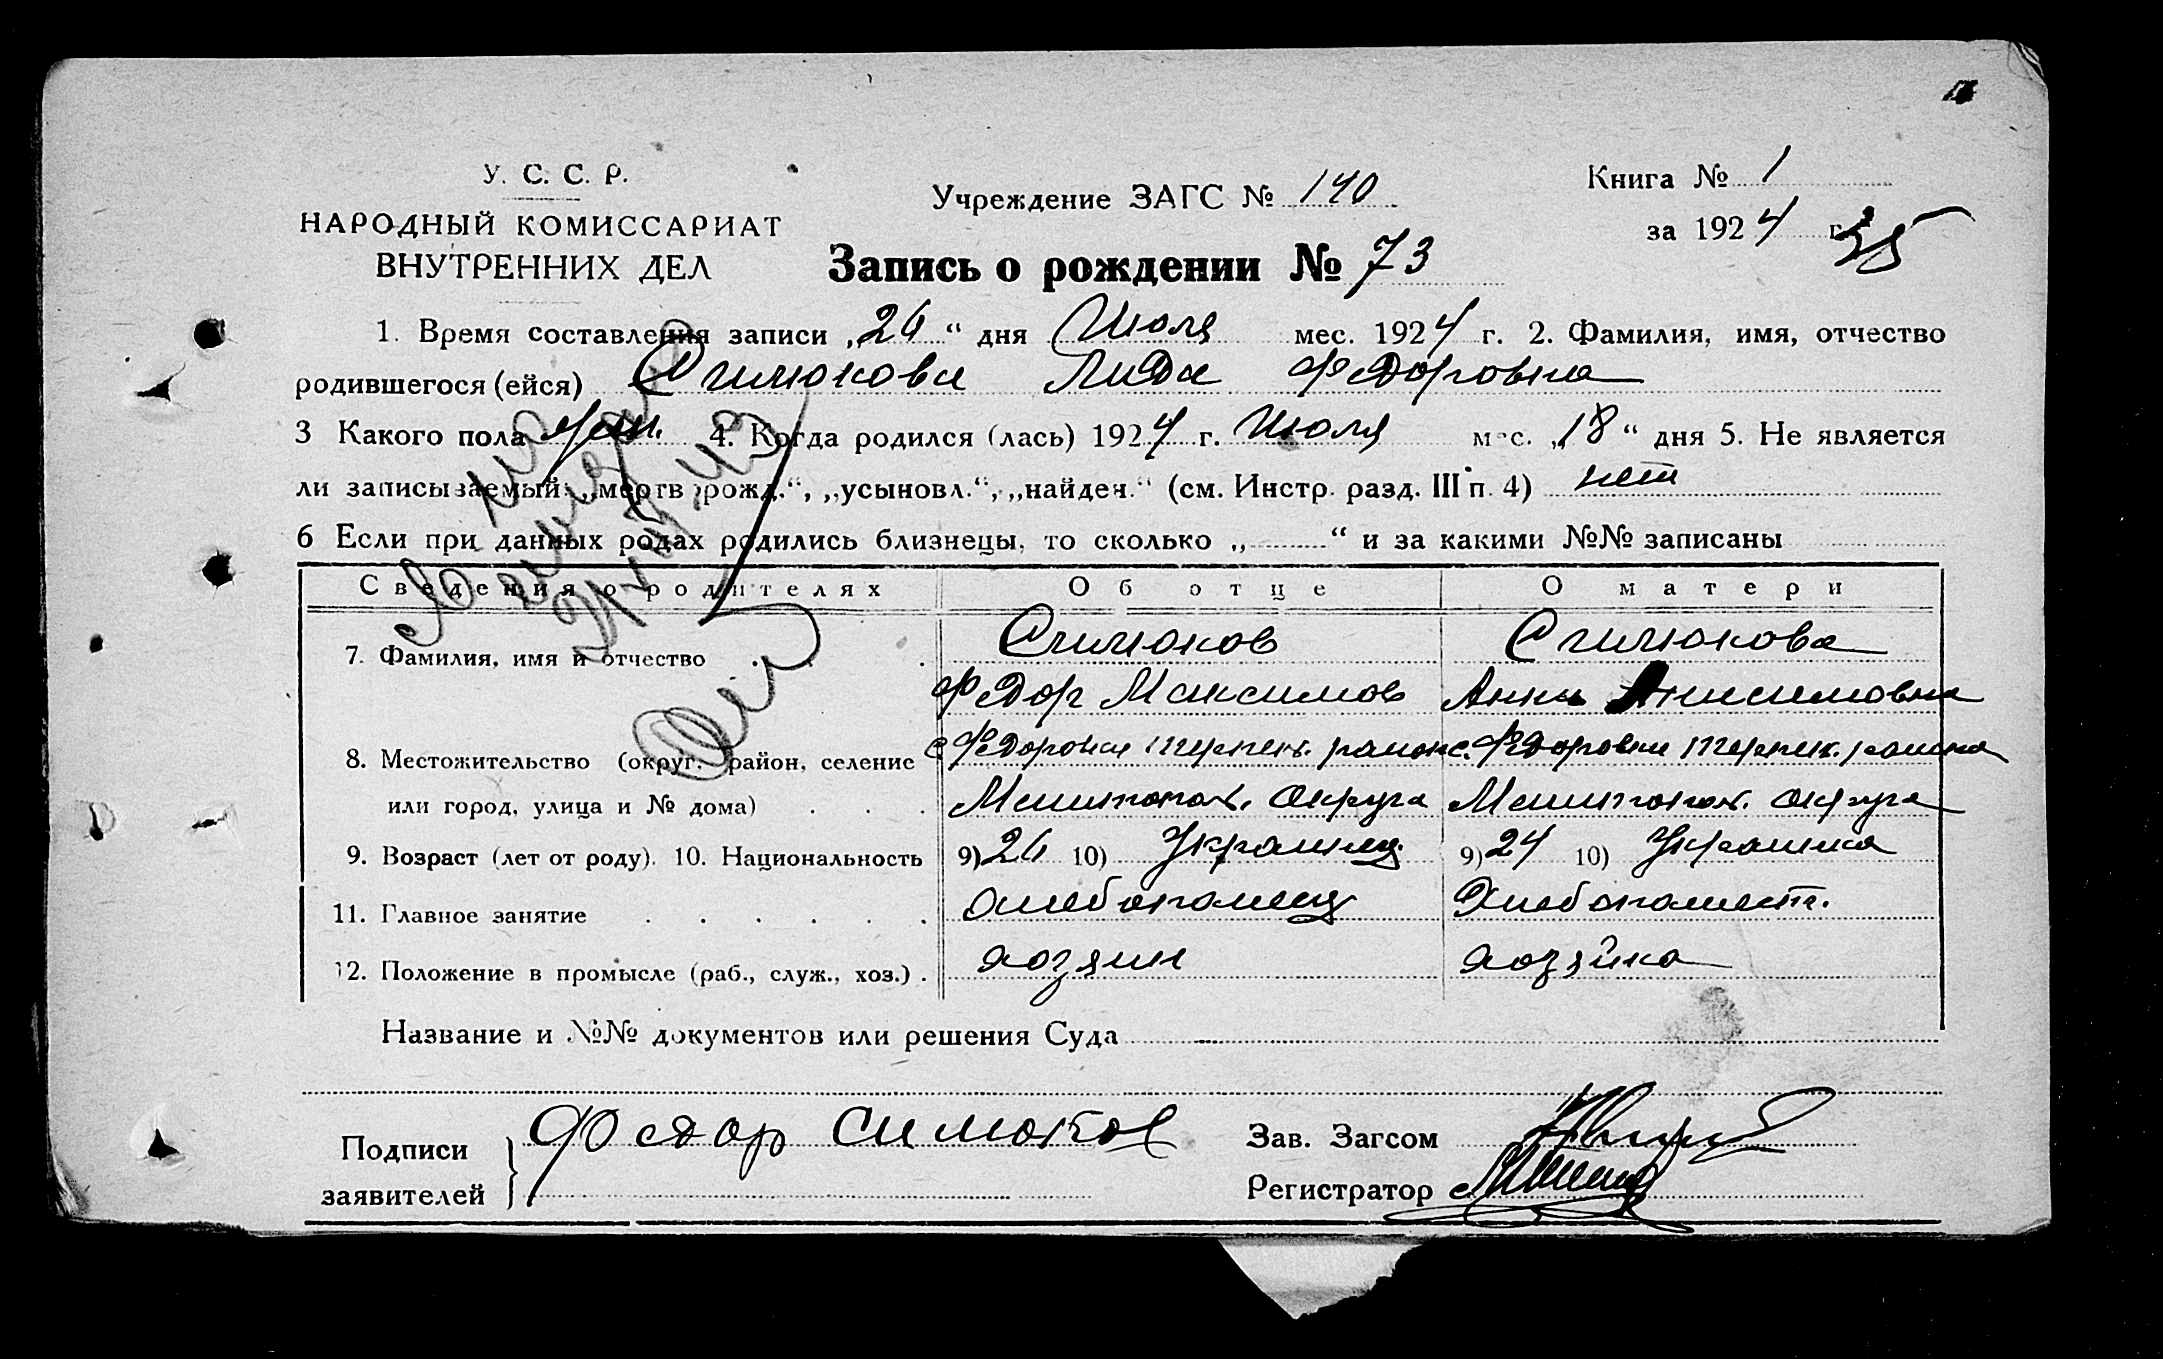 У. С. С. Р.
НАРОДНЫЙ КОМИССАРИАТ
ВНУТРЕННИХ ДЕЛ
Учреждение ЗАГС № 140
Книга № 1
за 1924 г.
35
Запись о рождении № 73
1. Время составления записи „26“ дня Июля мес. 1924 г. 2. Фамилия, имя, отчество
родившегося (ейся) Симокова Лида Федоровна
3 Какого пола жен. 4. Когда родился (лась) 1924 г. Июля мес. „18“ дня 5. Не является
ли записываемый: „мертв рожд.“, „усыновл.“, „найден.“ (см. Инстр. разд. III п. 4) нет
6 Если при данных родах родились близнецы, то сколько „ “ и за какими №№ записаны
Сведения о родителях Об отце О матери
7. Фамилия, имя и отчество Симоков Симокова
Федор Максимов Анна Анисимовна
8. Местожительство (округ, район, селение с. Федоровка район с. Федоровка района
или город, улица и № дома) Мелитопол. округа Мелитопол. округа
9. Возраст (лет от роду). 10. Национальность 9) 26 10) Украинец 9) 24 10) Украинка
11. Главное занятие хлебопашец Хлебопашест.
12. Положение в промысле (раб., служ., хоз.) хозяин хозяйка
Название и №№ документов или решения Суда
Подписи
заявителей
Федор Симоков
Зав. Загсом
Регистратор